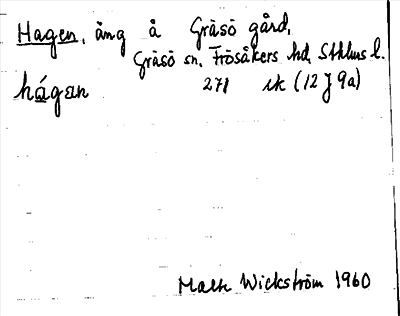 Hagen, äng å Gräsö gård,
Gräsö sn, Frösåkers hd, Sthlms l.
hágan 271 ek (12 J 9a)
Malte Wickström 1960